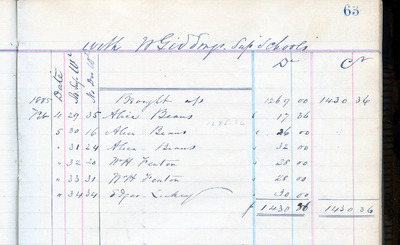 63
with W Giddings. Sup Schools
Date No. of Wt No. Dis 18 Dr Cr
1885 Brought up 1269 00 1430 36
Feb 4 29 35 Alice Beans " 17 36
5 30 16 Alice Beans " 26 00
" 31 24 Alice Beans " 32 00
" 32 20 WH Fenton " 28 00
" 33 31 WH Fenton " 28 00
" 34 34 Edgar " 30 00
$ 1430 36 1430 36